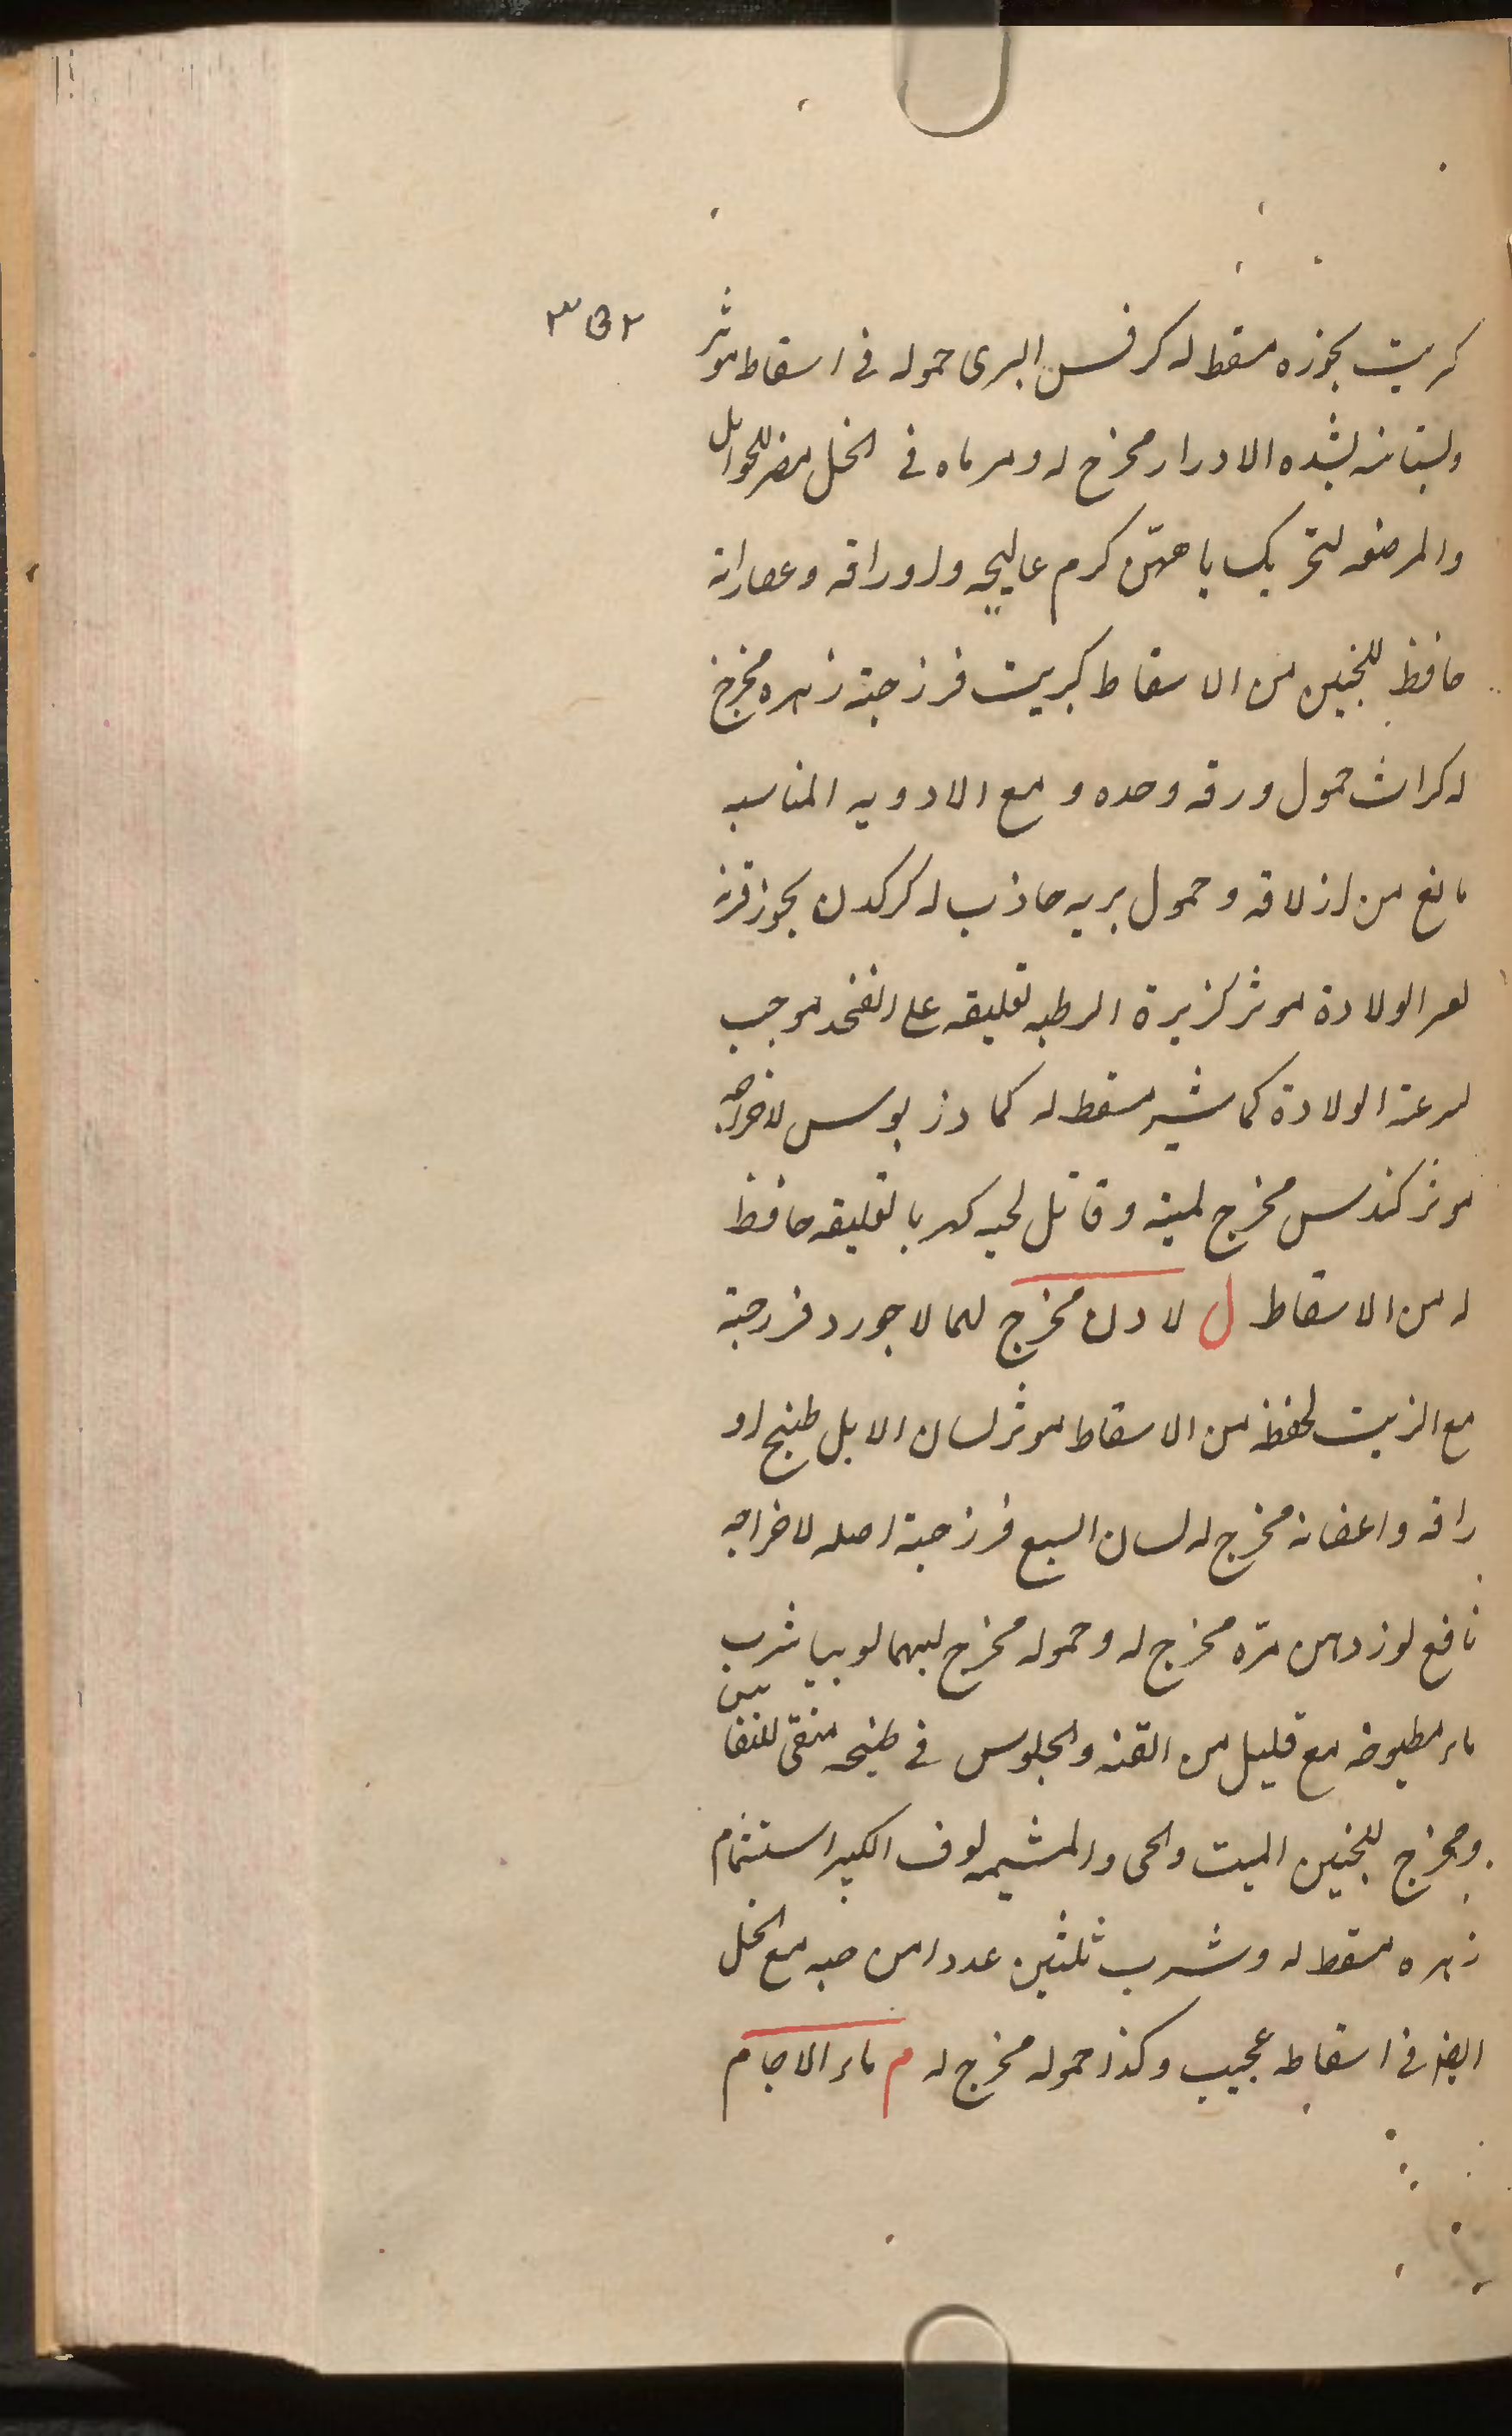 ٣٥٢
كريت بخوره مسقط له كرفس البرى حموله فى اسقاط موثر
وبستانيه لشده الادرار مخرج له ومرباه فى الخل مضر للحوامل
والمرضعه لتحريك باههن كرم عاليجه واوراقه وعصاراته
حافظ للجنين من الاسقاط كبريت فرزجة زهره مخرج
له كراث حمول ورقه وحده و مع الادويه المناسبه
مانع من ازلاقه وحمول بريه جاذب له كركدن بخور قرنه
لعسر الولادة موثر كزبرة الرطبه تعليقه على الفخد موجب
لسرعة الولادة كماشير مسقط له كمادريوس لاخراجه
موثر كندس مخرج لميته وقاتل لحيه كهربا تعليقه حافظ
له من الاسقاط ل لادن مخرج لهما لاجورد فرزجة
مع الزيت لحفظه من الاسقاط موثر لسان الابل طبيخ او
راقه واغصانه مخرج له لسان السبع فرزجة اصله لاخراجه
نافع لوز دهن مره مخرج له وحموله مخرج لهما لوبيا شرب
ماء مطبوخه مع قليل من القنه والجلوس فى طبيخه منقى للنفا
سين
ومخرج للجنين الميت والحى والمشيمه لوف الكبير استشمام
زهره مسقط له وشرب ثلثين عددا من حبه مع الخل
ايضا فى اسقاطه عجيب وكذا حموله مخرج له م ماء الاجام